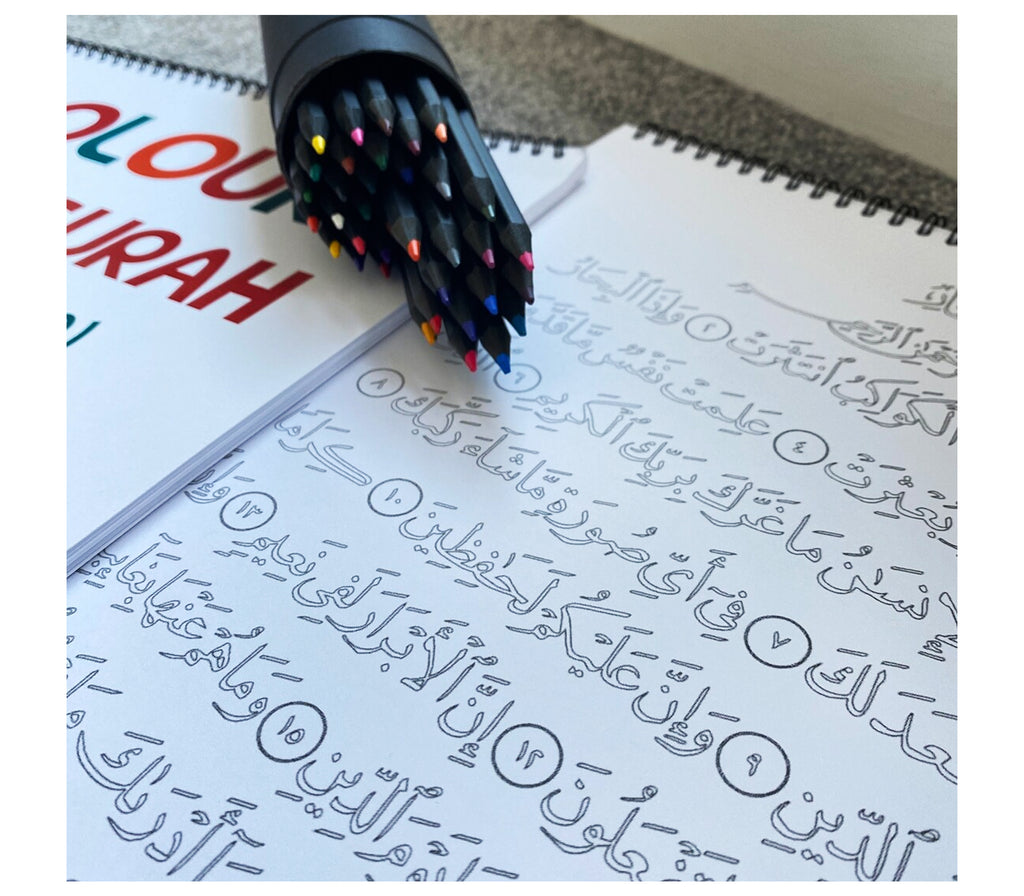 OLOU
URAH
ٱلرَّحِيمِ
ٱلْكَوَاكِبُ ٱنتَثَرَتْ ٢ وَإِذَا ٱلْبِحَارُ
بُعْثِرَتْ ٤ عَلِمَتْ نَفْسٌ مَّا قَدَّ
إِنسَٰنُ مَا غَرَّكَ بِرَبِّكَ ٱلْكَرِيمِ ٦
عَدَلَكَ ٧ فِىٓ أَىِّ صُورَةٍ مَّا شَآءَ رَكَّبَكَ ٨
ٱلدِّينِ ٩ وَإِنَّ عَلَيْكُمْ لَحَٰفِظِينَ ١٠ كِرَامًا
عَلُونَ ١٢ إِنَّ ٱلْأَبْرَارَ لَفِى نَعِيمٍ ١٣ وَإِ
ٱلدِّينِ ١٥ وَمَا هُمْ عَنْهَا بِغَآئِ
أَدْرَىٰكَ مَا